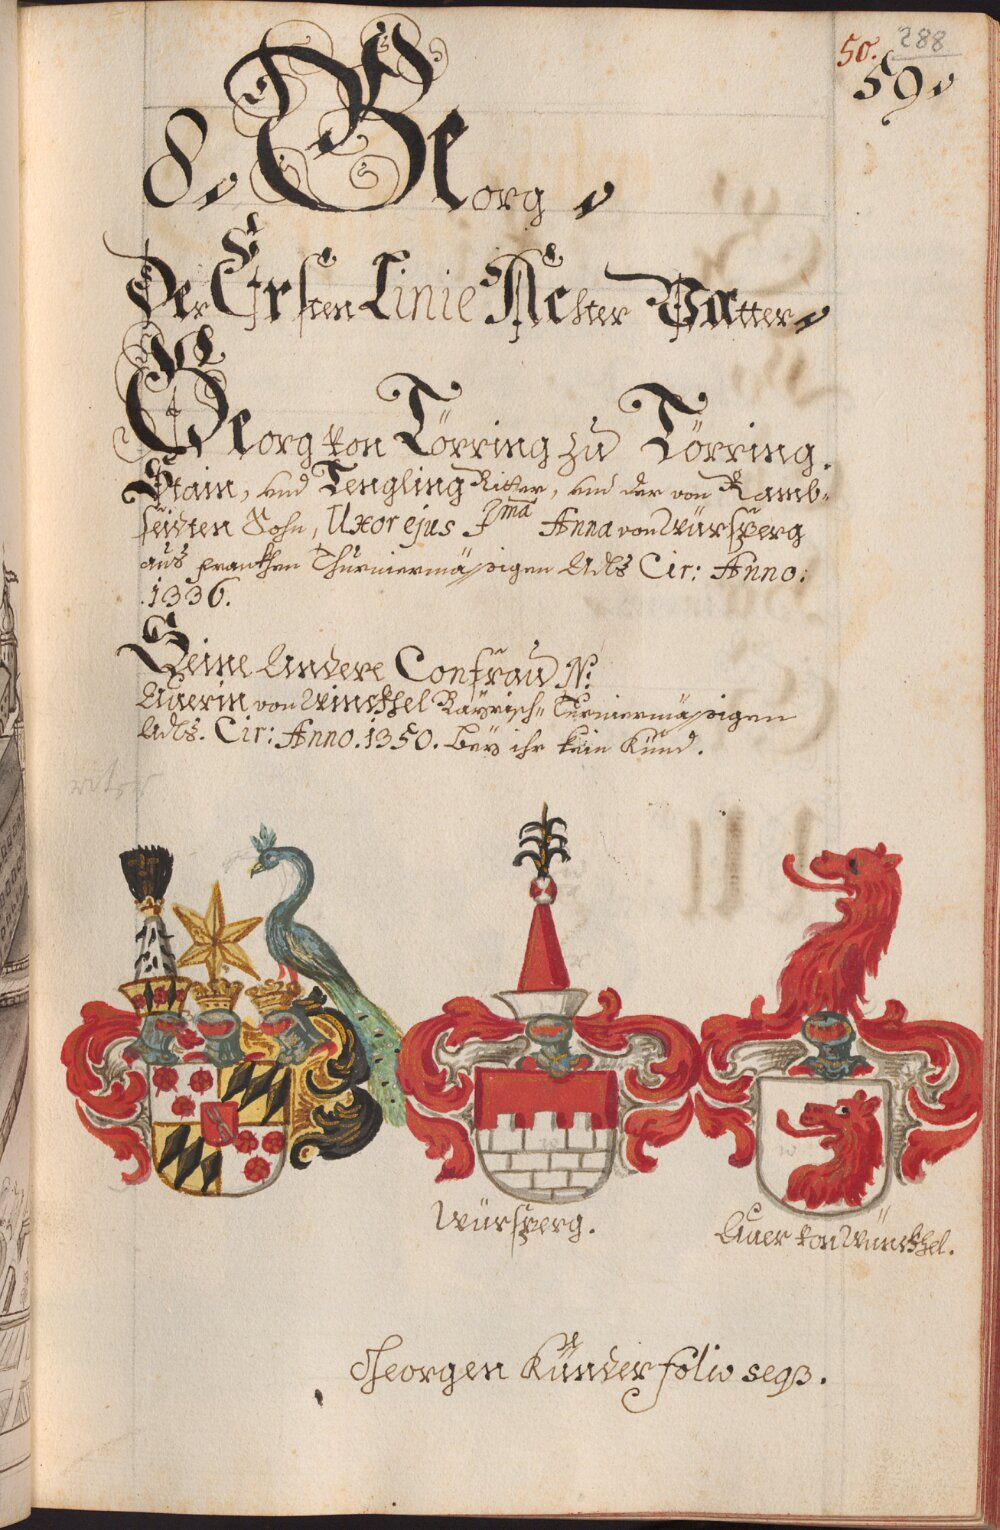 50. 288
59.
8. Georg.
Der Ersten Linie Achter Vatter.
Georg von Törring zu Törring.
Stain, und Tengling Ritter, und der von Ramb-
seidten Sohn, Uxor ejus I^ma Anna von Würsperg
aus frankhen Thurniermässigen Adls Cir: Anno:
.1336.
Seine Andere Confraw N:
Auerin von Winckhel Bayrisch: Turniermässigen
Adls. Cir: Anno. 1350. bey ihr kein Kind.
Würsperg.
Auer von Wünckhel.
Georgen Künder folio seqß.